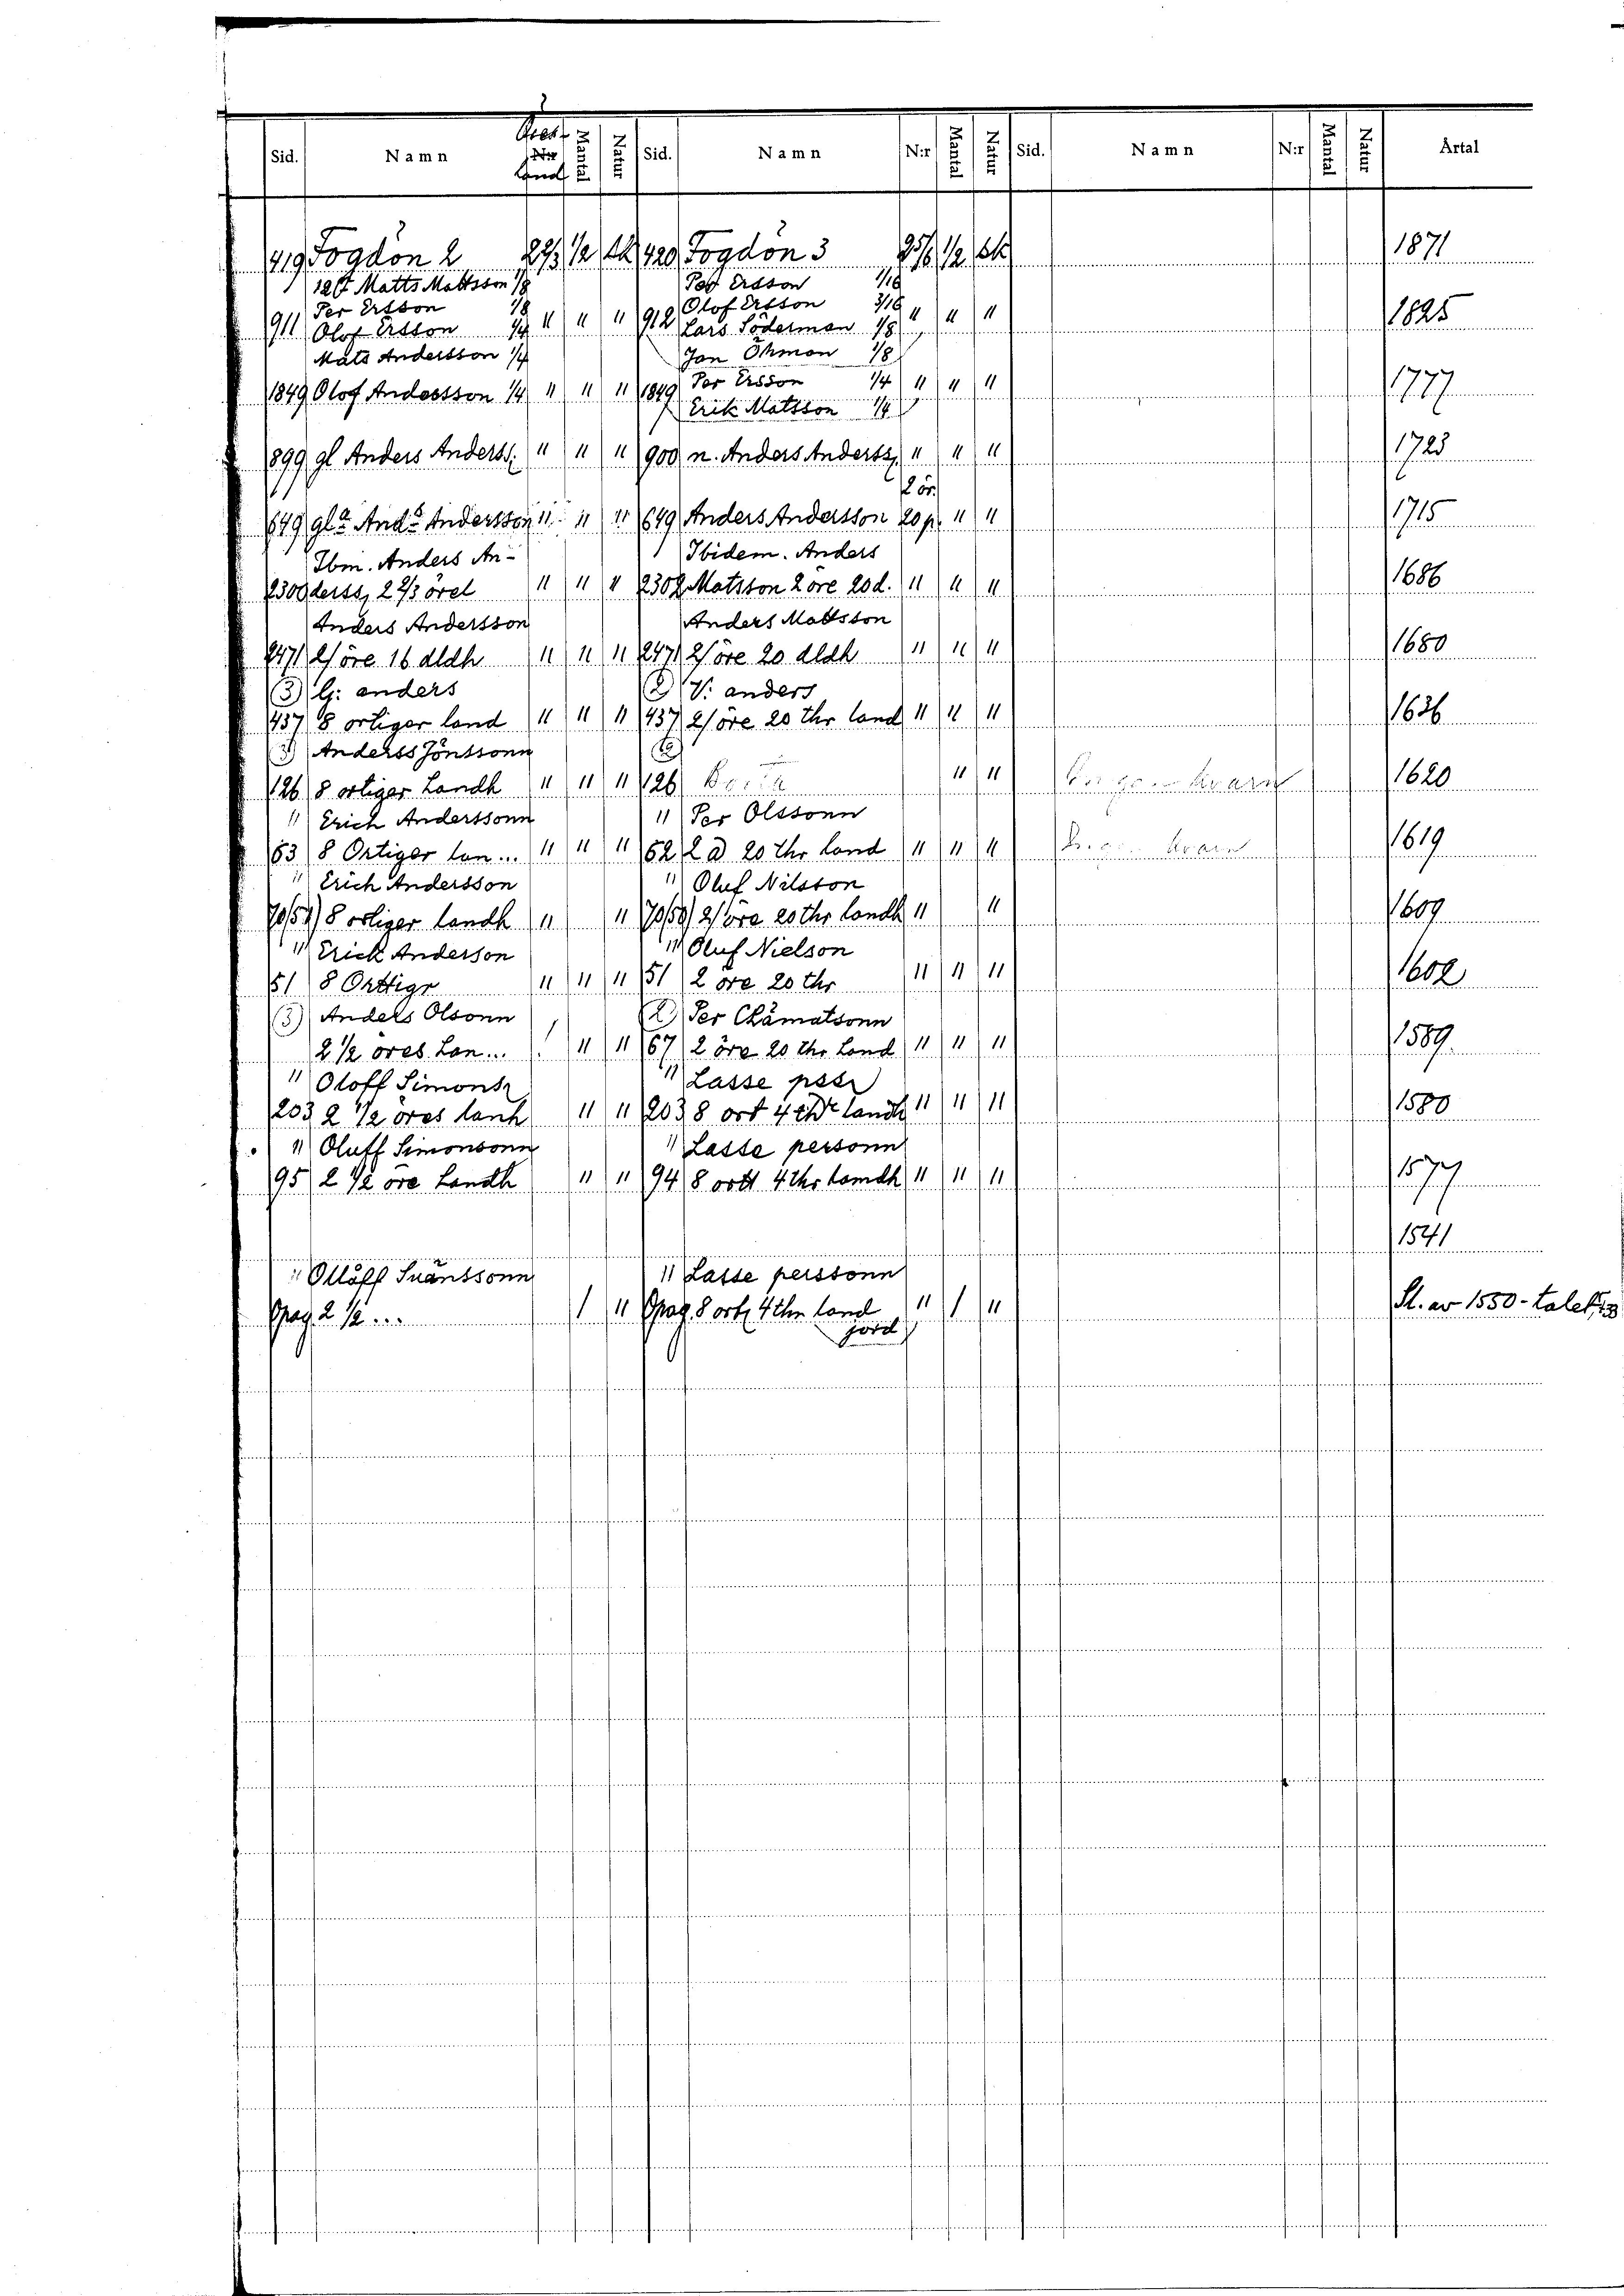 Sid. Namn Nr land Mantal Natur Sid. Namn N:r Mantal Natur Sid. Namn N:r Mantal Natur Årtal
419 Fogdön 2 22/3 1/2 sk 420 Fogdön 3 25/6 1/2 sk 1871
Matts Mattsson 1/8 Per Ersson 1/16
Per Ersson 1/8 Olof Ersson 3/16
911 Olof Ersson 1/4 " " " 912 Lars Söderman 1/8 " " " 1825
Mats Andersson 1/4 Jan Öhman 1/8
1849 Olof Andersson 1/4 " " " 1849 Per Ersson 1/4 " " " 1777
Erik Matsson 1/4
899 gl Anders Anderss. " " " 900 n. Anders Anderss. " " " 1723
2 ör.
649 gla Ands Andersson " " " 649 Anders Andersson 20 p. " " 1715
Ibm. Anders An- Ibidem. Anders
2300 derss, 2 2/3 örel " " " 2302 Matsson 2 öre 20 d. " " " 1686
Anders Andersson Anders Mattsson
247 2/öre 16 dldh " " " 247 2/öre 20 dldh " " " 1680
(3) G: anders (2) V: anders
437 8 ortiger land " " " 437 2/öre 20 thr land " " " 1636
(3) Anderss Jönssonn (2)
126 8 ortiger Landh " " " 126 " " 1620
" Erich Anderssonn " Per Olssonn
63 8 Ortiger lan... " " " 62 2 a 20 thr land " " " 1619
" Erich Andersson " Oluf Nilsson
70/51 8 ortiger landh " " 70/50 2/öre 20 thr landh " " 1609
" Erick Anderson " Oluf Nielson
51 8 Orttigr " " " 51 2 öre 20 thr " " " 1602
(3) Anders Olsonn (2) Per Chämatsonn
2 1/2 öres Lan... 1 " " 67 2 öre 20 thr Land " " " 1589
" Oloff Simons " Lasse pss
203 2 1/2 öres lanh " " 203 8 ort 4 thr landh " " " 1580
" Oluff Simonsonn " Lasse personn
95 2 1/2 öre Landh " " 94 8 ortt 4 thr lamdh " " " 1577
1541
" Ollåff Suänssonn " Lasse perssonn
Opag. 2 1/2 ... 1 " Opag. 8 ort 4 thr land " 1 " Sl. av 1550-talet, 13
jord